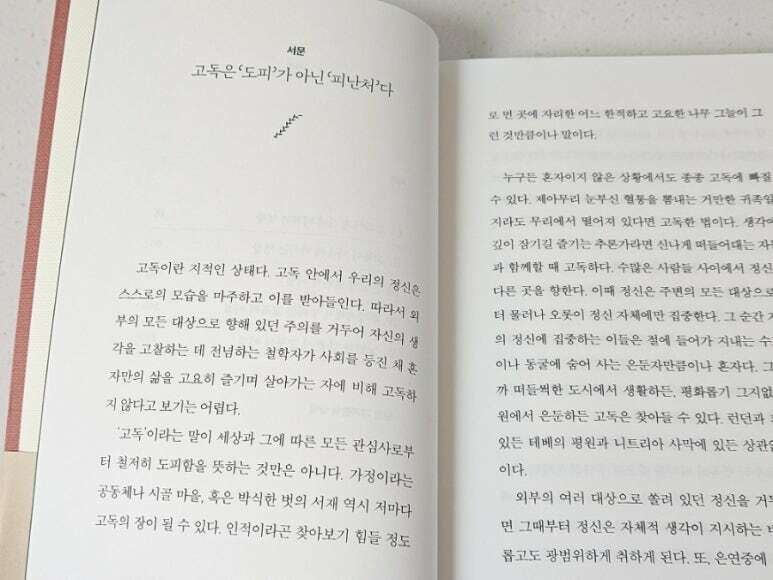 서문
고독은 ‘도피’가 아닌 ‘피난처’다
고독이란 지적인 상태다. 고독 안에서 우리의 정신은
스스로의 모습을 마주하고 이를 받아들인다. 따라서 외
부의 모든 대상으로 향해 있던 주의를 거두어 자신의 생
각을 고찰하는 데 전념하는 철학자가 사회를 등진 채 혼
자만의 삶을 고요히 즐기며 살아가는 자에 비해 고독하
지 않다고 보기는 어렵다.
‘고독’이라는 말이 세상과 그에 따른 모든 관심사로부
터 철저히 도피함을 뜻하는 것만은 아니다. 가정이라는
공동체나 시골 마을, 혹은 박식한 벗의 서재 역시 저마다
고독의 장이 될 수 있다. 인적이라곤 찾아보기 힘들 정도
로 먼 곳에 자리한 어느 한적하고 고요한 나무 그늘이 그
런 것만큼이나 말이다.
누구든 혼자이지 않은 상황에서도 종종 고독에 빠질
수 있다. 제아무리 눈부신 혈통을 뽐내는 거만한 귀족일
지라도 무리에서 떨어져 있다면 고독한 법이다. 생각에
깊이 잠기길 즐기는 추론가라면 신나게 떠들어대는 자
과 함께할 때 고독하다. 수많은 사람들 사이에서 정신
다른 곳을 향한다. 이때 정신은 주변의 모든 대상으로
터 물러나 오롯이 정신 자체에만 집중한다. 그 순간
의 정신에 집중하는 이들은 절에 들어가 지내는 수
이나 동굴에 숨어 사는 은둔자만큼이나 혼자다. 그
까 떠들썩한 도시에서 생활하든, 평화롭기 그지없
원에서 은둔하든 고독은 찾아들 수 있다. 런던과
있든 테베의 평원과 니트리아 사막에 있든 상관없
이다.
외부의 여러 대상으로 쏠려 있던 정신을 거두
면 그때부터 정신은 자체적 생각이 지시하는 바
롭고도 광범위하게 취하게 된다. 또, 은연중에